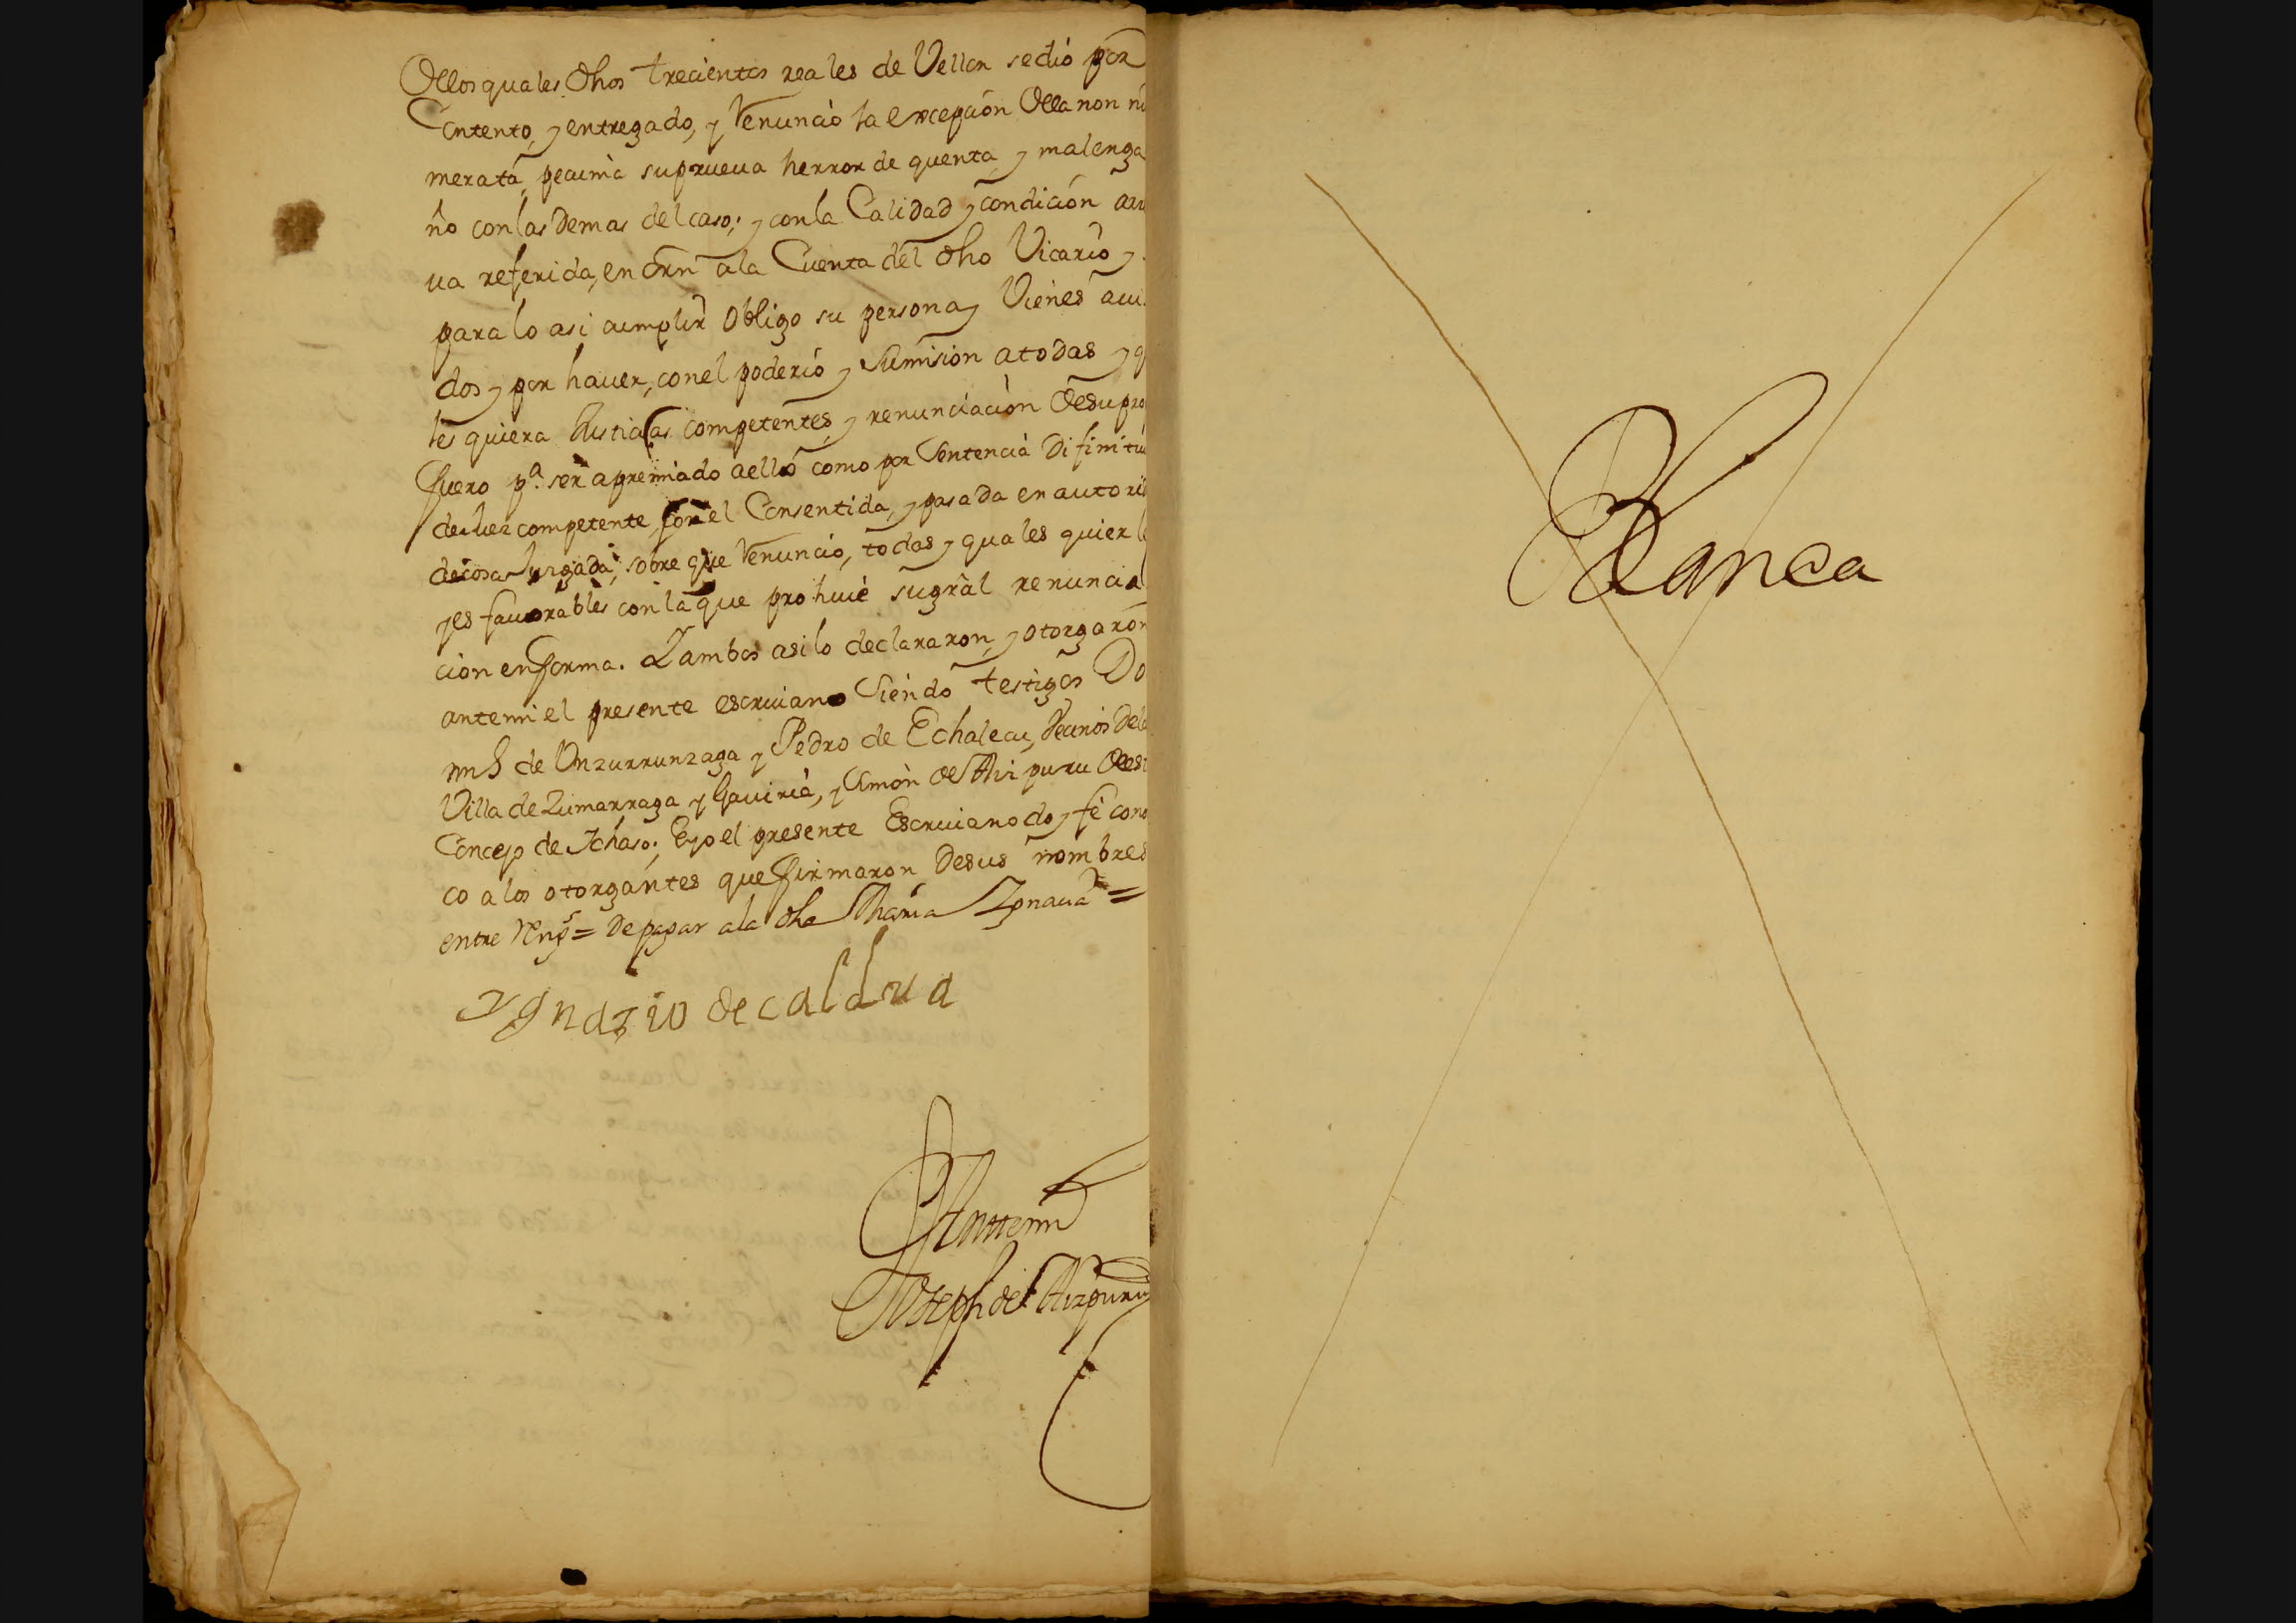 Dellos quales dhos trecientos reales de Vellon se dió por
Contento, y entregado, y Renunció la excepción Dela non nu
merata, pecunia su prueua herror de quenta, y malenga
ño con las Demas del caso; y con la Calidad y condición arri
ua referida, en orn a la Cuenta del dho Vicario y
para lo asi cumplir Obligo su persona y Vienes aui
dos y por hauer, con el poderio y Sumision a todas y q
les quiera Justicias competentes, y renunciación De su pro
fuero pa. ser apremiado a ello como por Sentencia Difinitiu
de Juez competente por el Consentida, y pasada en autori
de cosa Juzgada; sobre que Renunció, todas y quales quier le
yes fauorables con la que prohiue su gral renuncia
ción en forma. Y ambos asi lo declararon, y otorgaron
ante mi el presente escriuano Siendo testigos Do
mns de Unzurrunzaga y Pedro de Echalecu, Vecinos Dela
Villa de Zumarraga y Gauiria, y Simón de Aizpuru Deest
Concejo de Ichaso; E yo el presente Escriuano doy fe cono
co a los otorgantes que firmaron De sus nombres
entre Rengs = De pagar a la dha Maria Ygnacia =
Ygnazio de caldua
Ante mi
Joseph de Aizpuru
Blanca